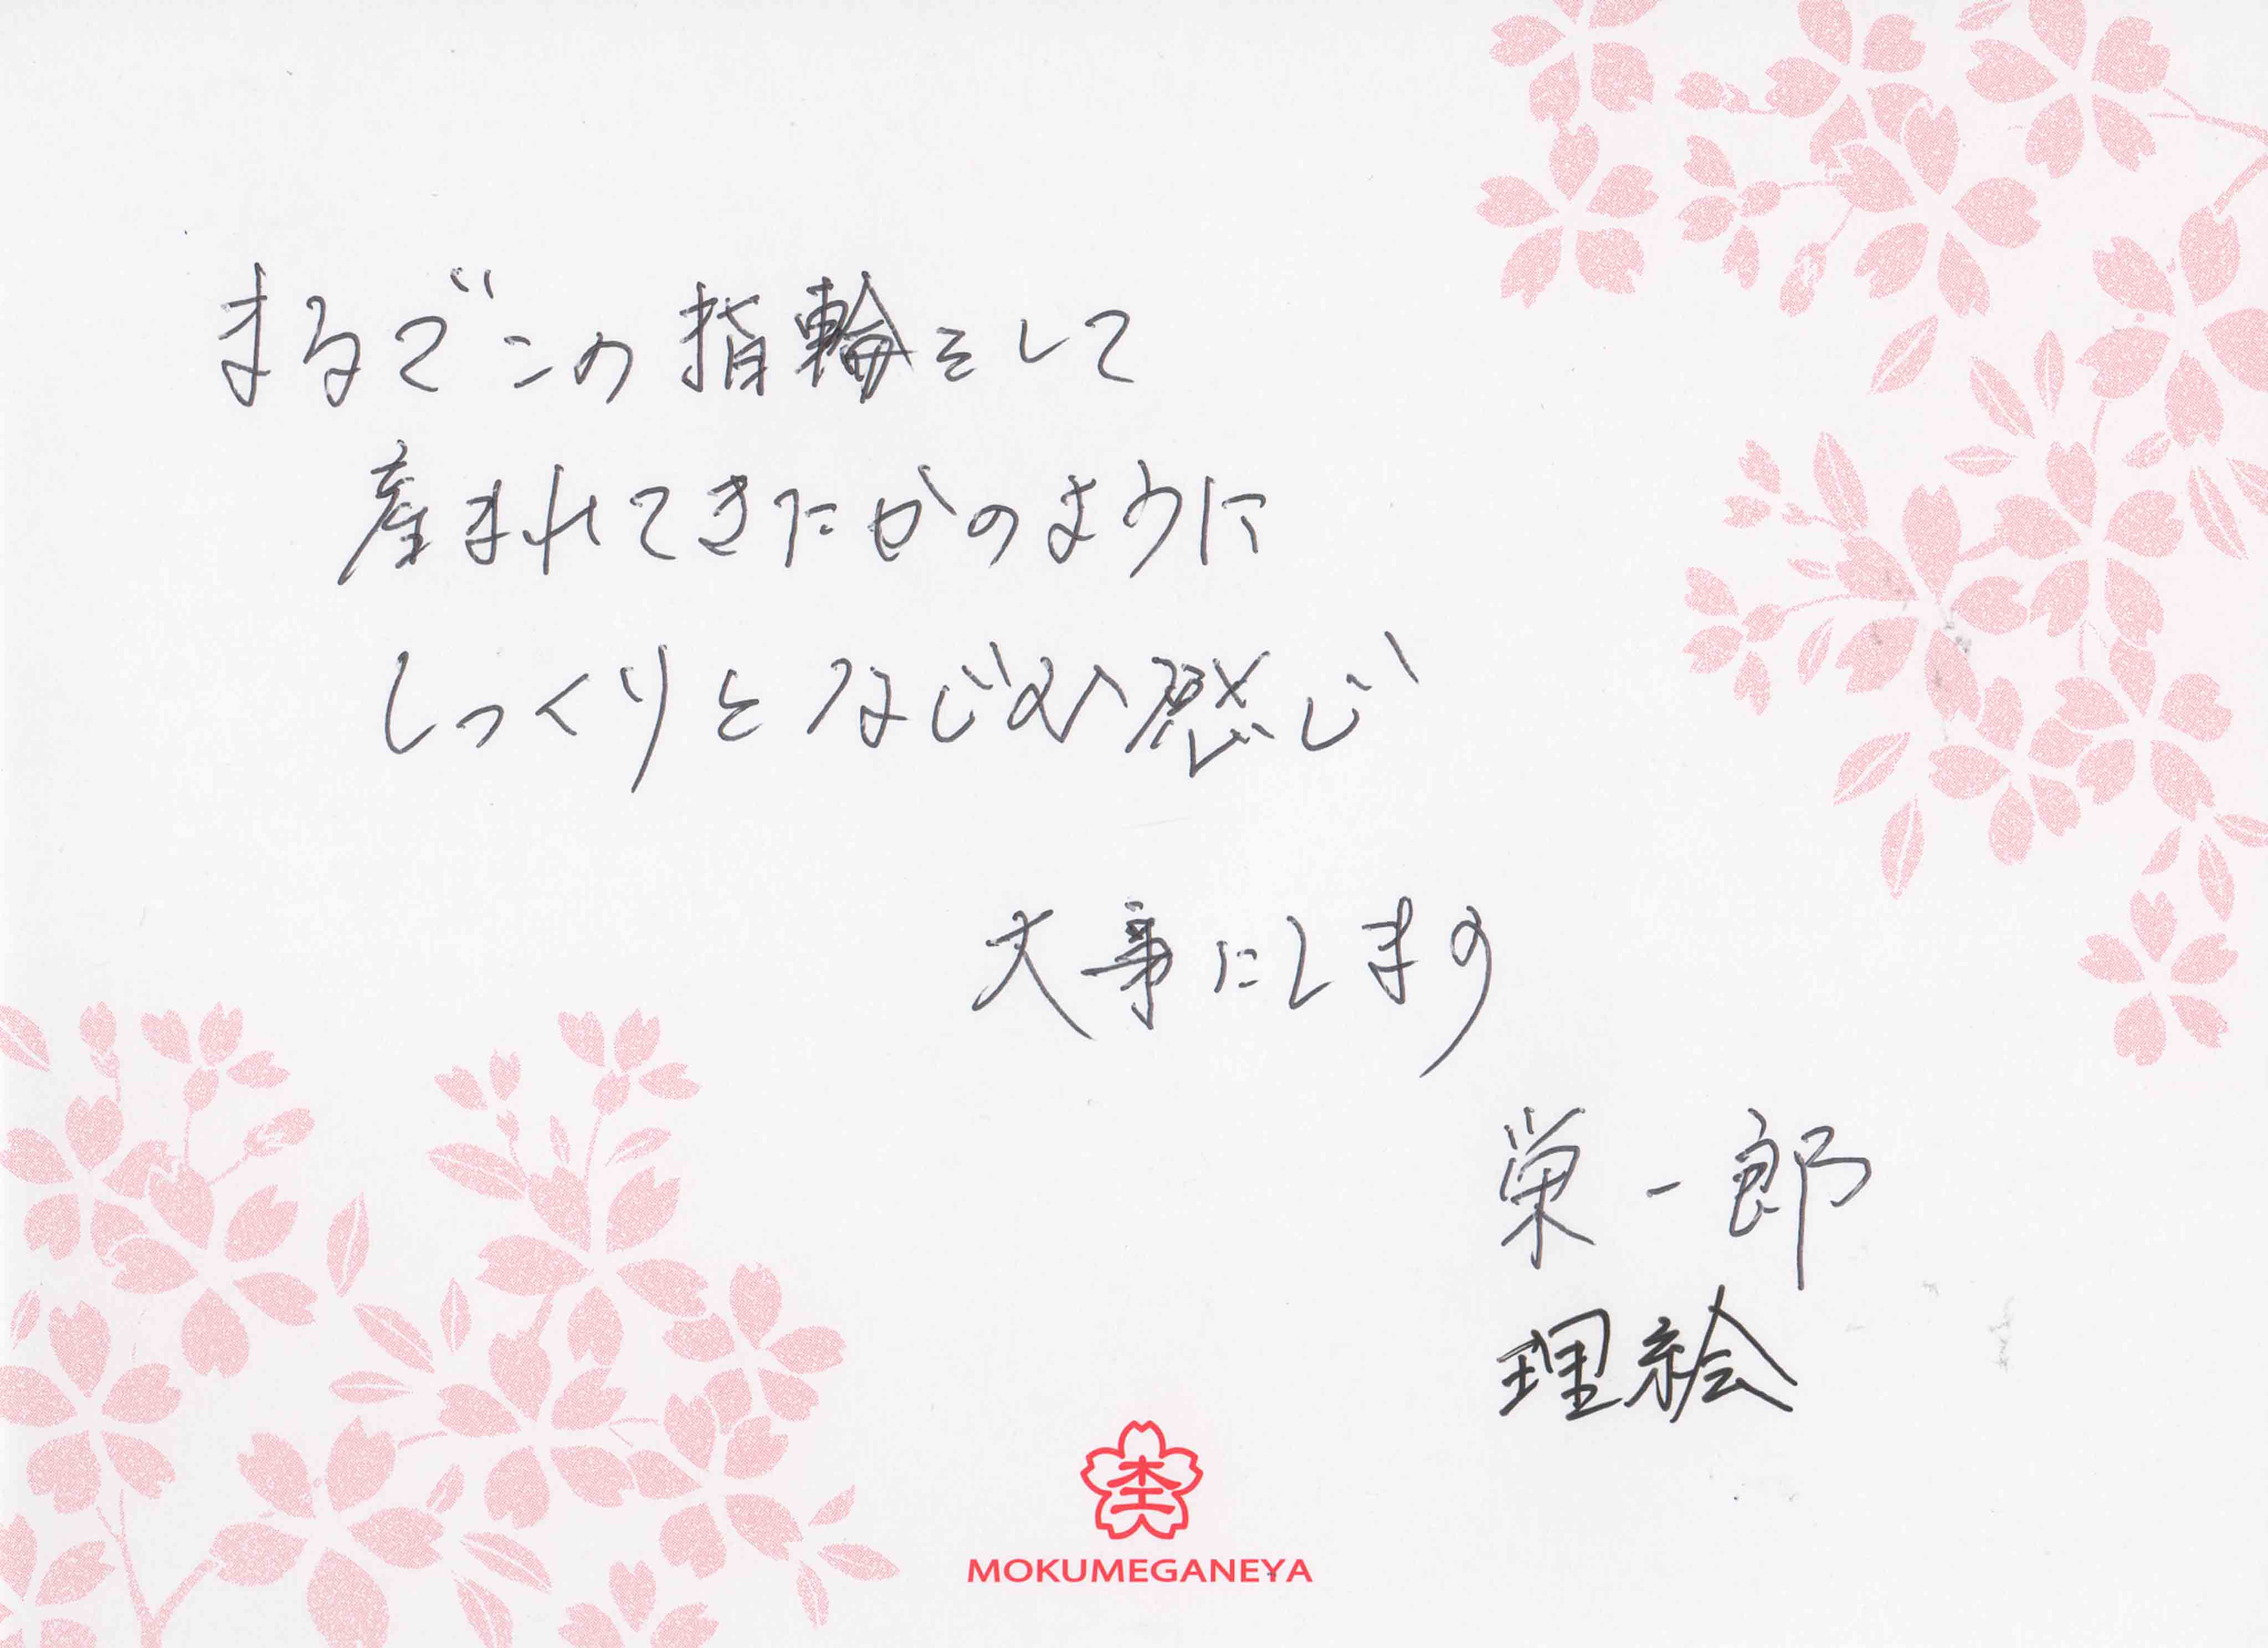 まるでこの指輪をして
産まれてきたかのように
しっくりとなじむ感じ
大事にします
栄一郎
理絵
杢
MOKUMEGANEYA